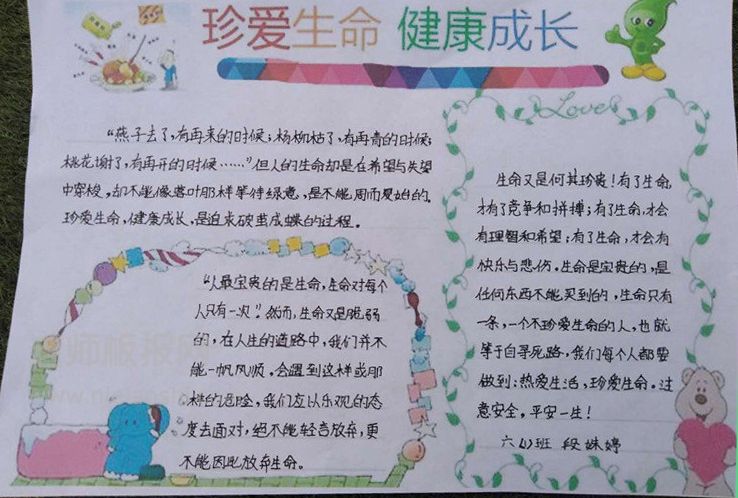 珍爱生命 健康成长
Love
"燕子去了,有再来的时候;杨柳枯了,有再青的时候;
桃花谢了,有再开的时候……"但人的生命却是在希望与失望
中穿梭,却不能像落叶那样等待绿意,是不能周而复始的。
珍爱生命,健康成长,是迎来破茧成蝶的过程。
"人最宝贵的是生命,生命对每个
人只有一次"。然而,生命又是脆弱
的,在人生的道路中,我们并不
能一帆风顺。会遇到这样或那
样的危险,我们应以乐观的态
度去面对,绝不能轻言放弃,更
不能因此放弃生命。
生命又是何其珍贵!有了生命,
才有了竞争和拼搏;有了生命,才会
有理智和希望;有了生命,才会有
快乐与悲伤。生命是宝贵的,是
任何东西不能买到的,生命只有
一条,一个不珍爱生命的人,也就
等于自寻死路,我们每个人都要
做到:热爱生活,珍爱生命。注
意安全。平安一生!
六(1)班 段姝婷
师板报网